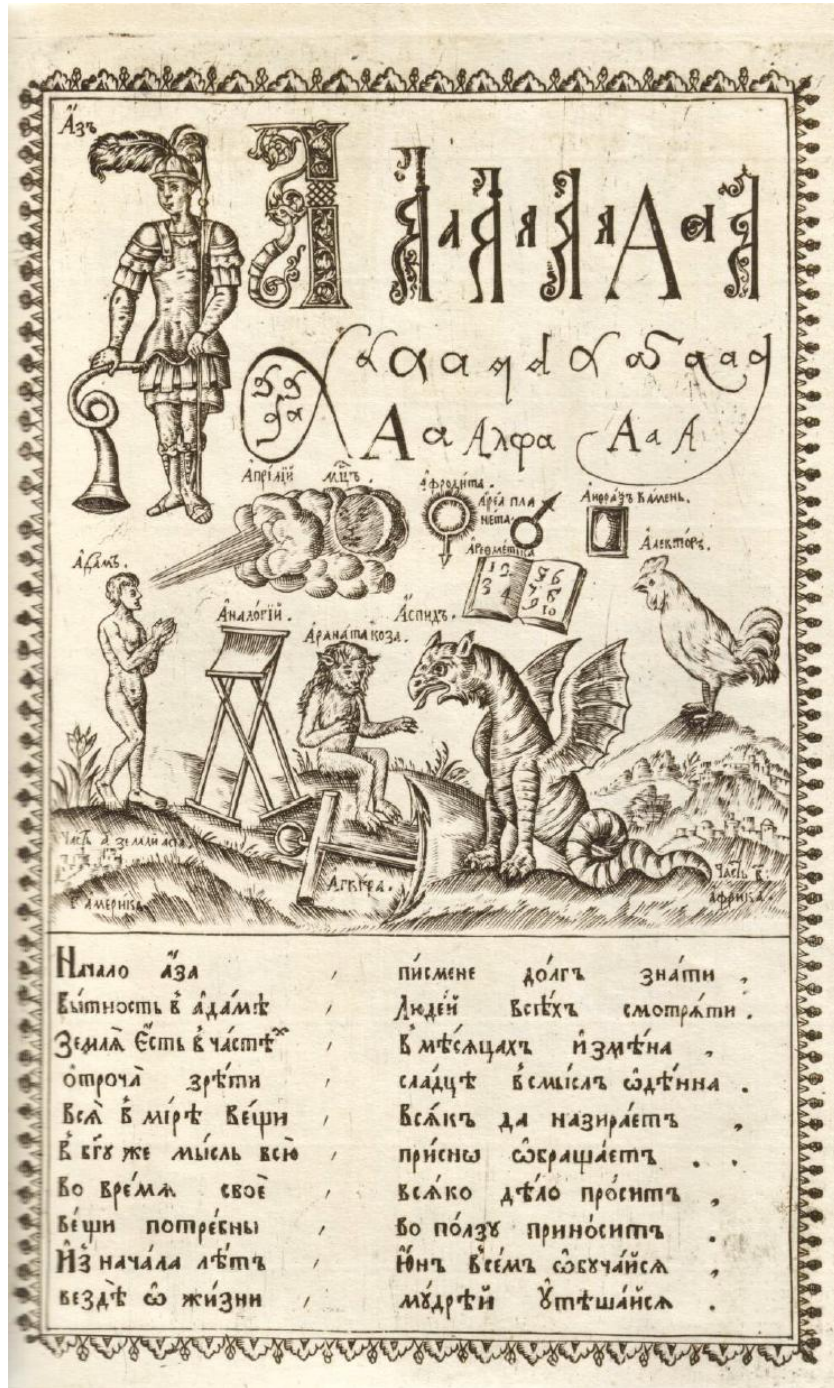 А҆́зъ
А А а А я А я А а А
а а а а а а а а а а
А а Алфа А а А
А҆прі́лїй мц҃ъ .
А҆фроди́та .
А҆́реа пла
не́та
А҆рѳме́тїка
1 2
3 4
5 6
7 8
9 10
А҆нфра́ѯъ ка́мень .
А҆ле́кторъ .
А҆да́мъ .
А҆нало́гїй .
А҆́спидъ .
коза .
Часть а҃ земли асіа
г҃ америка
А҆гкѵра .
Часть в҃
а҆фрика .
Нача́ло а҆́за , пи́смене до́лгъ зна́ти ,
Бы́тность в̾ а҆да́мѣ , Люде́й всѣ́хъ смотря́ти .
Земля̀ є҆́сть в̾ ча́стѣхъ , в̾ мѣ́сяцахъ и҆змѣ́на ,
ѻ҆троча̀ зрѣ́ти , сла́дцѣ в̾ смы́слъ ѡ҆дѣ́нна .
Вся̑ в̾ мі́рѣ ве́щи , вся́къ да назира́етъ ,
в̾ бг҃у же мы́сль всю̀ , при́снѡ ѡ҆браща́етъ .
Во вре́мя своѐ , вся́ко дѣ́ло про́ситъ ,
ве́щи потре́бны , во по́лзу прино́ситъ .
И҆з̾ нача́ла лѣ́тъ , Ю҆́нъ в̾се́мъ ѡ҆буча́йся ,
вездѣ̀ ѡ҆ жи́зни , му́дрѣй ᲂу҆тѣша́йся .